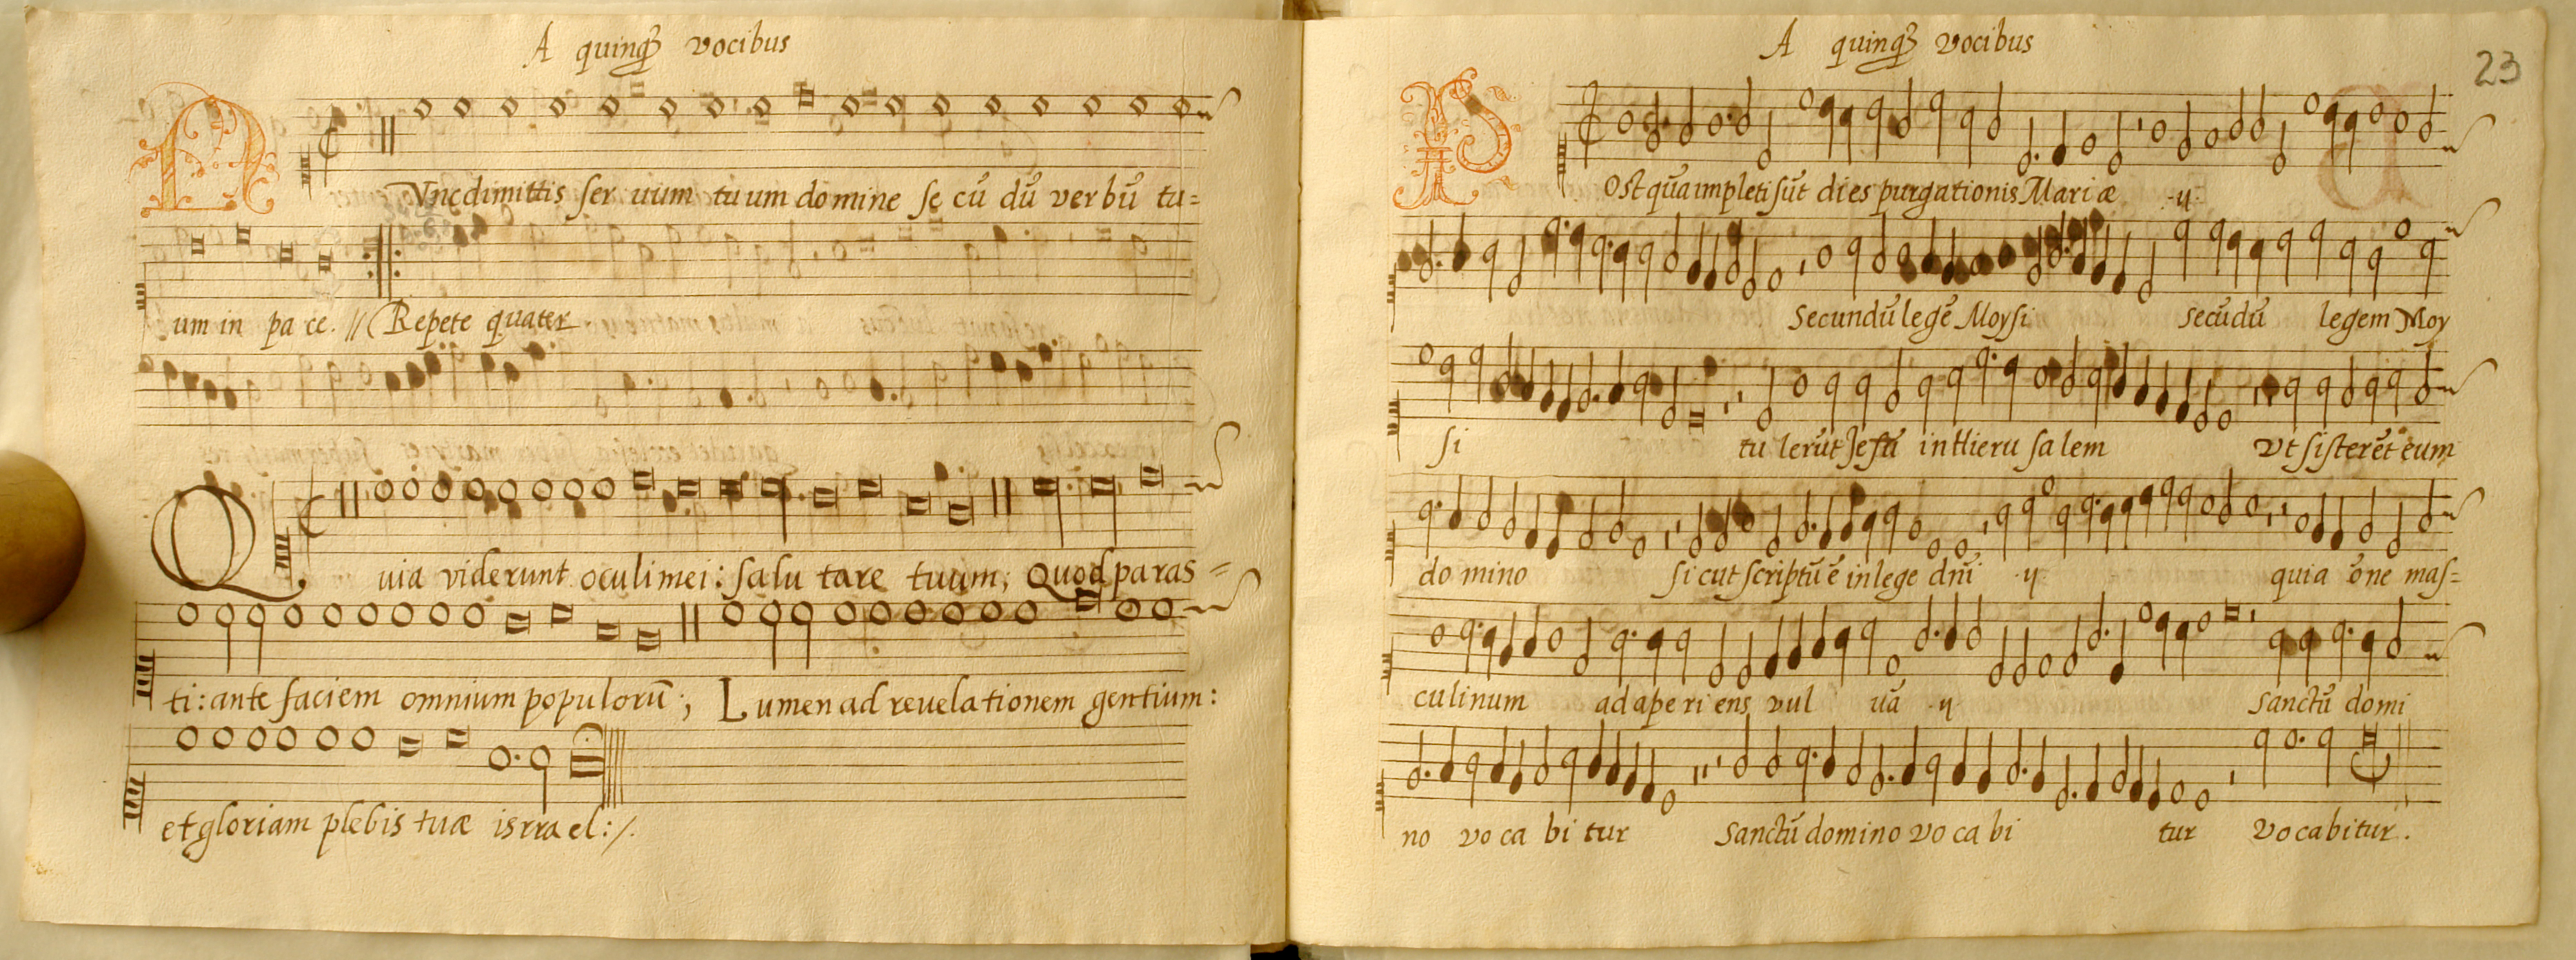 A quinqȝ vocibus
NVnc dimittis ser uium tuum domine se cū dū verbū tu=
um in pa ce. // Repete quater
Quia viderunt oculi mei: salu tare tuum; Quod paras=
ti: ante faciem omnium populorū; Lumen ad reuelationem gentium:
et gloriam plebis tuæ isrrael:/.
A quinqȝ vocibus
23
POst quā impleti sūt dies purgationis Mariæ ·ij·
Secundū legē Moysi secūdū legem Moy
si tu lerūt Jesū in Hieru salem Vt sisterēt eum
do mino sicut scriptū ē in lege dñi ·ij quia ōne mas=
culinum ad ape ri ens vul uā ·ij Sanctū domi
no vo ca bi tur Sanctū domino vo ca bi tur Vocabitur.